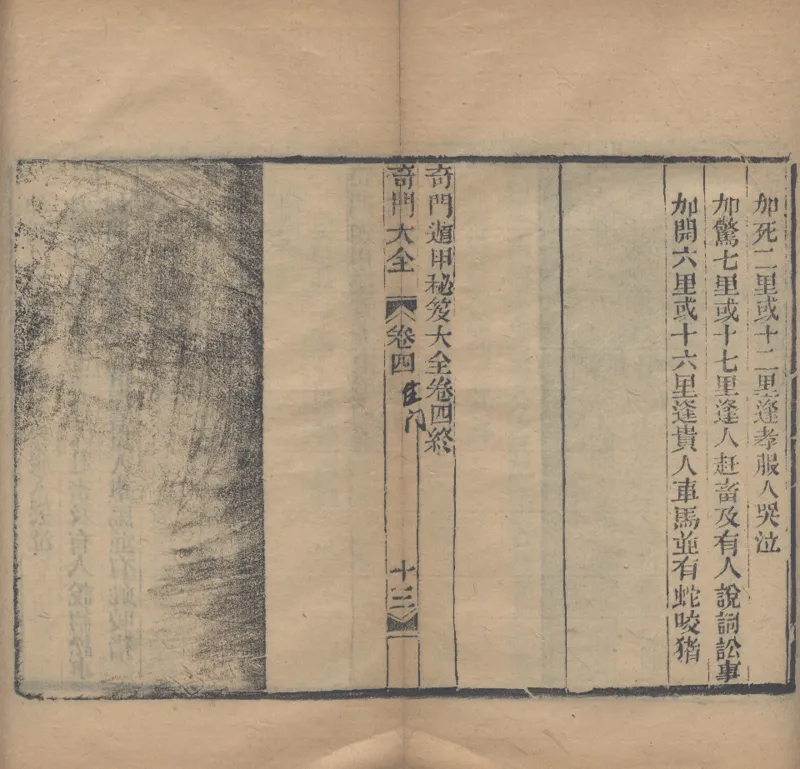 加死二里或十二里逢孝服人哭泣
加驚七里或十七里逢人赶畜及有人說詞訟事
加開六里或十六里逢貴人車馬並有蛇咬猪
奇門遁甲秘笈大全卷四終
奇門大全 卷四 生门 十三